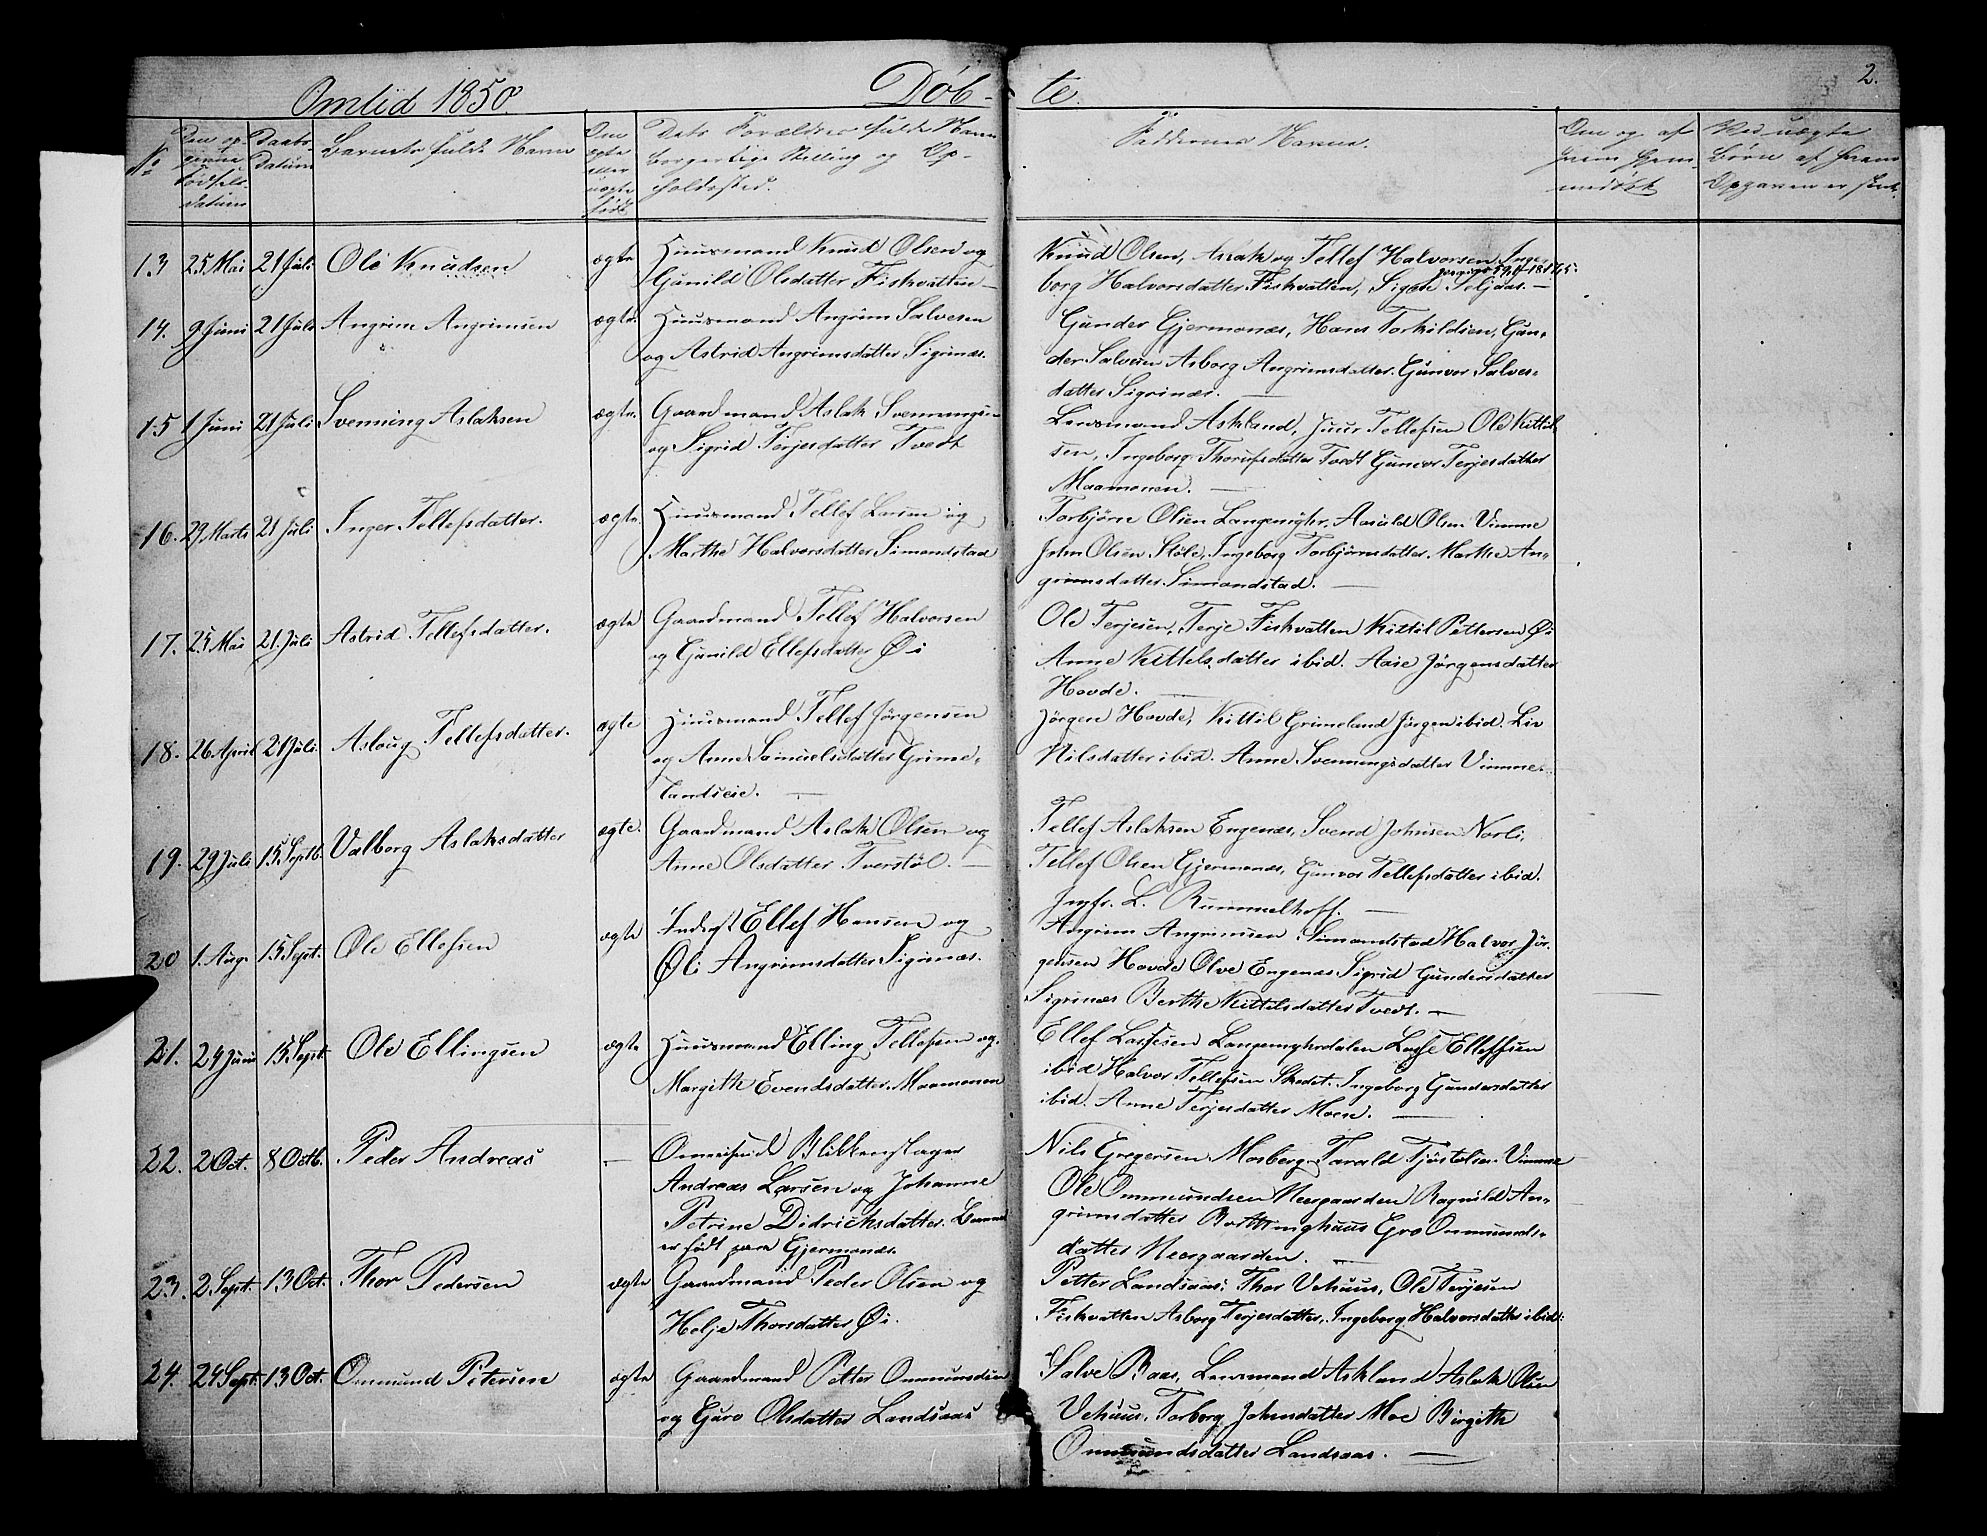 Omlid 1850. Døb- te. 2.
No Den op- givne Fødsels- datum Daabs- datum Barnets fulde Navn Om ægte eller uægte født Dets Forældres fulde Navn borgerlige Stilling og Op- holdssted. Faddernes Navne. Om og af hvem hjem- medøbt Ved uægte Børn af hvem Opgaven er skeet.
13 25 Mai 21 Juli Ole Knudsen ægte Huusmand Knud Olsen og
Gunild Olsdatter Fiskvatten –
Knud Olsen, Aslak og Tellef Halvorsen, Inge-
borg Halvorsdatter Fiskvatten, Signe Seljaas. –
14. 9 Juni 21 Juli Angrim Angrimsen ægte. Huusmand Angrim Salvesen
og Astrid Angrimsdatter Sigrinæs.
Gunder Gjermonæs, Hans Torkildsen, Gun-
der Salvesen Asborg Angrimsdatter. Gunvor Salves-
datter Sigrinæs.
15 1 Juni 21 Juli Svenning Aslaksen ægte. Gaardmand Aslak Svenningsen
og Sigrid Terjesdatter Tvedt
Lensmand Askland, Juur Tellefsen Ole Kittil-
sen, Ingeborg Thorufsdatter Tvedt Gunvor Terjesdatter
Maamonen. –
16. 29 Marts 21 Juli Inger Tellefsdatter. ægte. Huusmand Tellef Larsen og
Marthe Halvorsdatter Simonstad
Torbjørn Olsen Langemyhr, Aasuld Olsen Vimme
John Olsen Støle, Ingeborg Torbjørnsdatter. Marthe An-
grimsdatter Simonstad. –
17. 25 Mai 21. Juli Astrid Tellefsdatter. ægte Gaardmand Tellef Halvorsen
og Gunild Ellefsdatter Øi
Ole Terjesen, Terje Fiskvatten Kittil Pettersen Øi
Anne Kittelsdatter ibid. Aase Jörgensdatter
Hovde. –
18. 26 April 21 Juli. Aslaug Tellefsdatter. ægte Huusmand Tellef Jörgensen
og Anne Samuelsdatter Grime-
landseie. –
Jörgen Hovde, Kittil Grimeland Jörgen ibid. Liv
Nilsdatter ibid. Anne Svenningsdatter Vimme.
19. 29 Juli 15. Septb. Valborg Aslaksdatter ægte. Gaardmand Aslak Olsen og
Anne Olsdatter Tverstøl. –
Tellef Aslaksen Engenæs, Svend Johnsen Norli.
Tellef Olsen Gjermonæs, Gunvor Tellefsdatter ibid.
Jmfr. L. Rummelhoff. –
20 1. Aug. 15 Sept. Ole Ellefsen ægte Inderst Ellef Hansen og
Øli Angrimsdatter Sigrinæs.
Angrim Angrimsen Simonstad Halvor Jör-
gensen Hovde Olve Engenæs Sigrid Gundersdatter
Sigrinæs Berthe Kittelsdatter Tvedt. –
21. 24 Juni 15. Sept. Ole Ellingsen ægte Huusmand Elling Tellefsen og
Margith Evendsdatter Maamonen
Ellef Lassesen Langemyhrdalen Lasse Elleffsen
ibid Halvor Tellefsen Skedet. Ingeborg Gundersdatter
ibid. Anne Terjesdatter Moen. –
22. 2 Oct. 8 Octb. Peder Andreas – Blikkenslager
Andreas Larsen og Johanne
Petrine Didricksdatter. Barnet
er født paa Gjermonæs.
Nils Gregersen Mosberg Tarald Tjöstolsen Vimme
Ole Ommundsen Neergaarden Ragnild An-
grimsdatter Gro Ommunds-
datter Neergaarden. –
23. 2 Sept. 13 Oct. Thor Pedersen ægte Gaardmand Peder Olsen og
Helje Thorsdatter Øi.
Petter Landsaas. Thor Vehuus, Ole Terjesen
Fiskvatten Asborg Terjesdatter, Ingeborg Halvorsdatter ibid.
24. 24 Sept. 13 Oct. Ommund Petersen ægte Gaardmand Petter Ommundsen
og Guro Olsdatter Landsaas
Salve Baas, Lensmand Askland Aslak Olsen
Vehuus. Torborg Johnsdatter Moe Birgith
Ommundsdatter Landsaas. –